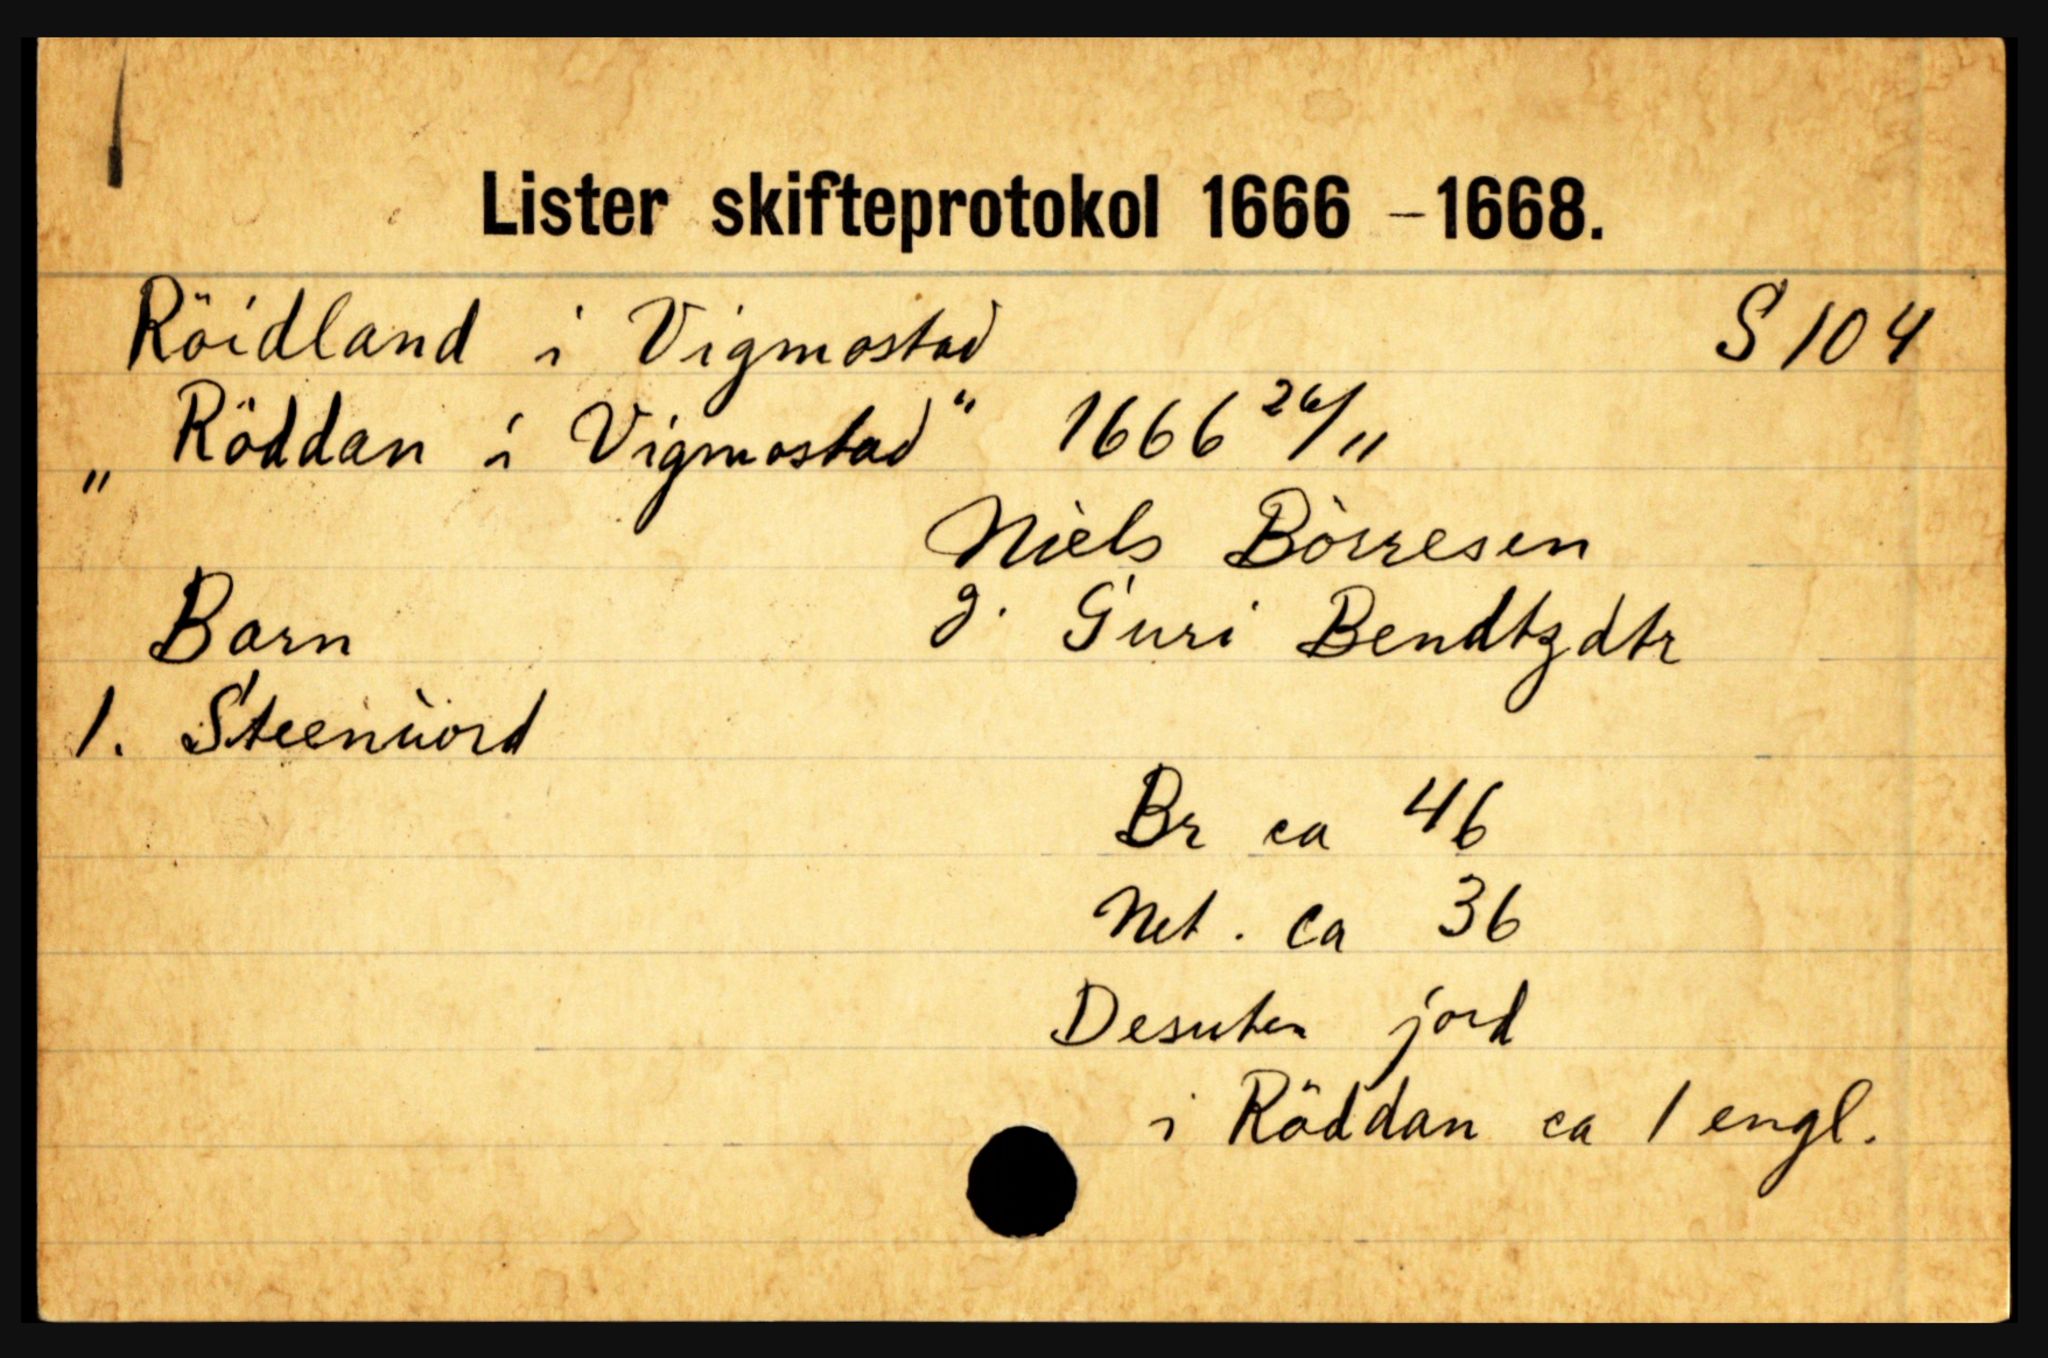 Lister skifteprotokol 1666 - 1668.
Röidland i Vigmostad S 104
„Röddan i Vigmostad“ 1666 26/11
Niels Börresen
Barn g. Guri Bendtzdtr
1. Steenuord
Br ca 46
Net. ca 36
Desuten jord
i Röddan ca 1 engl.